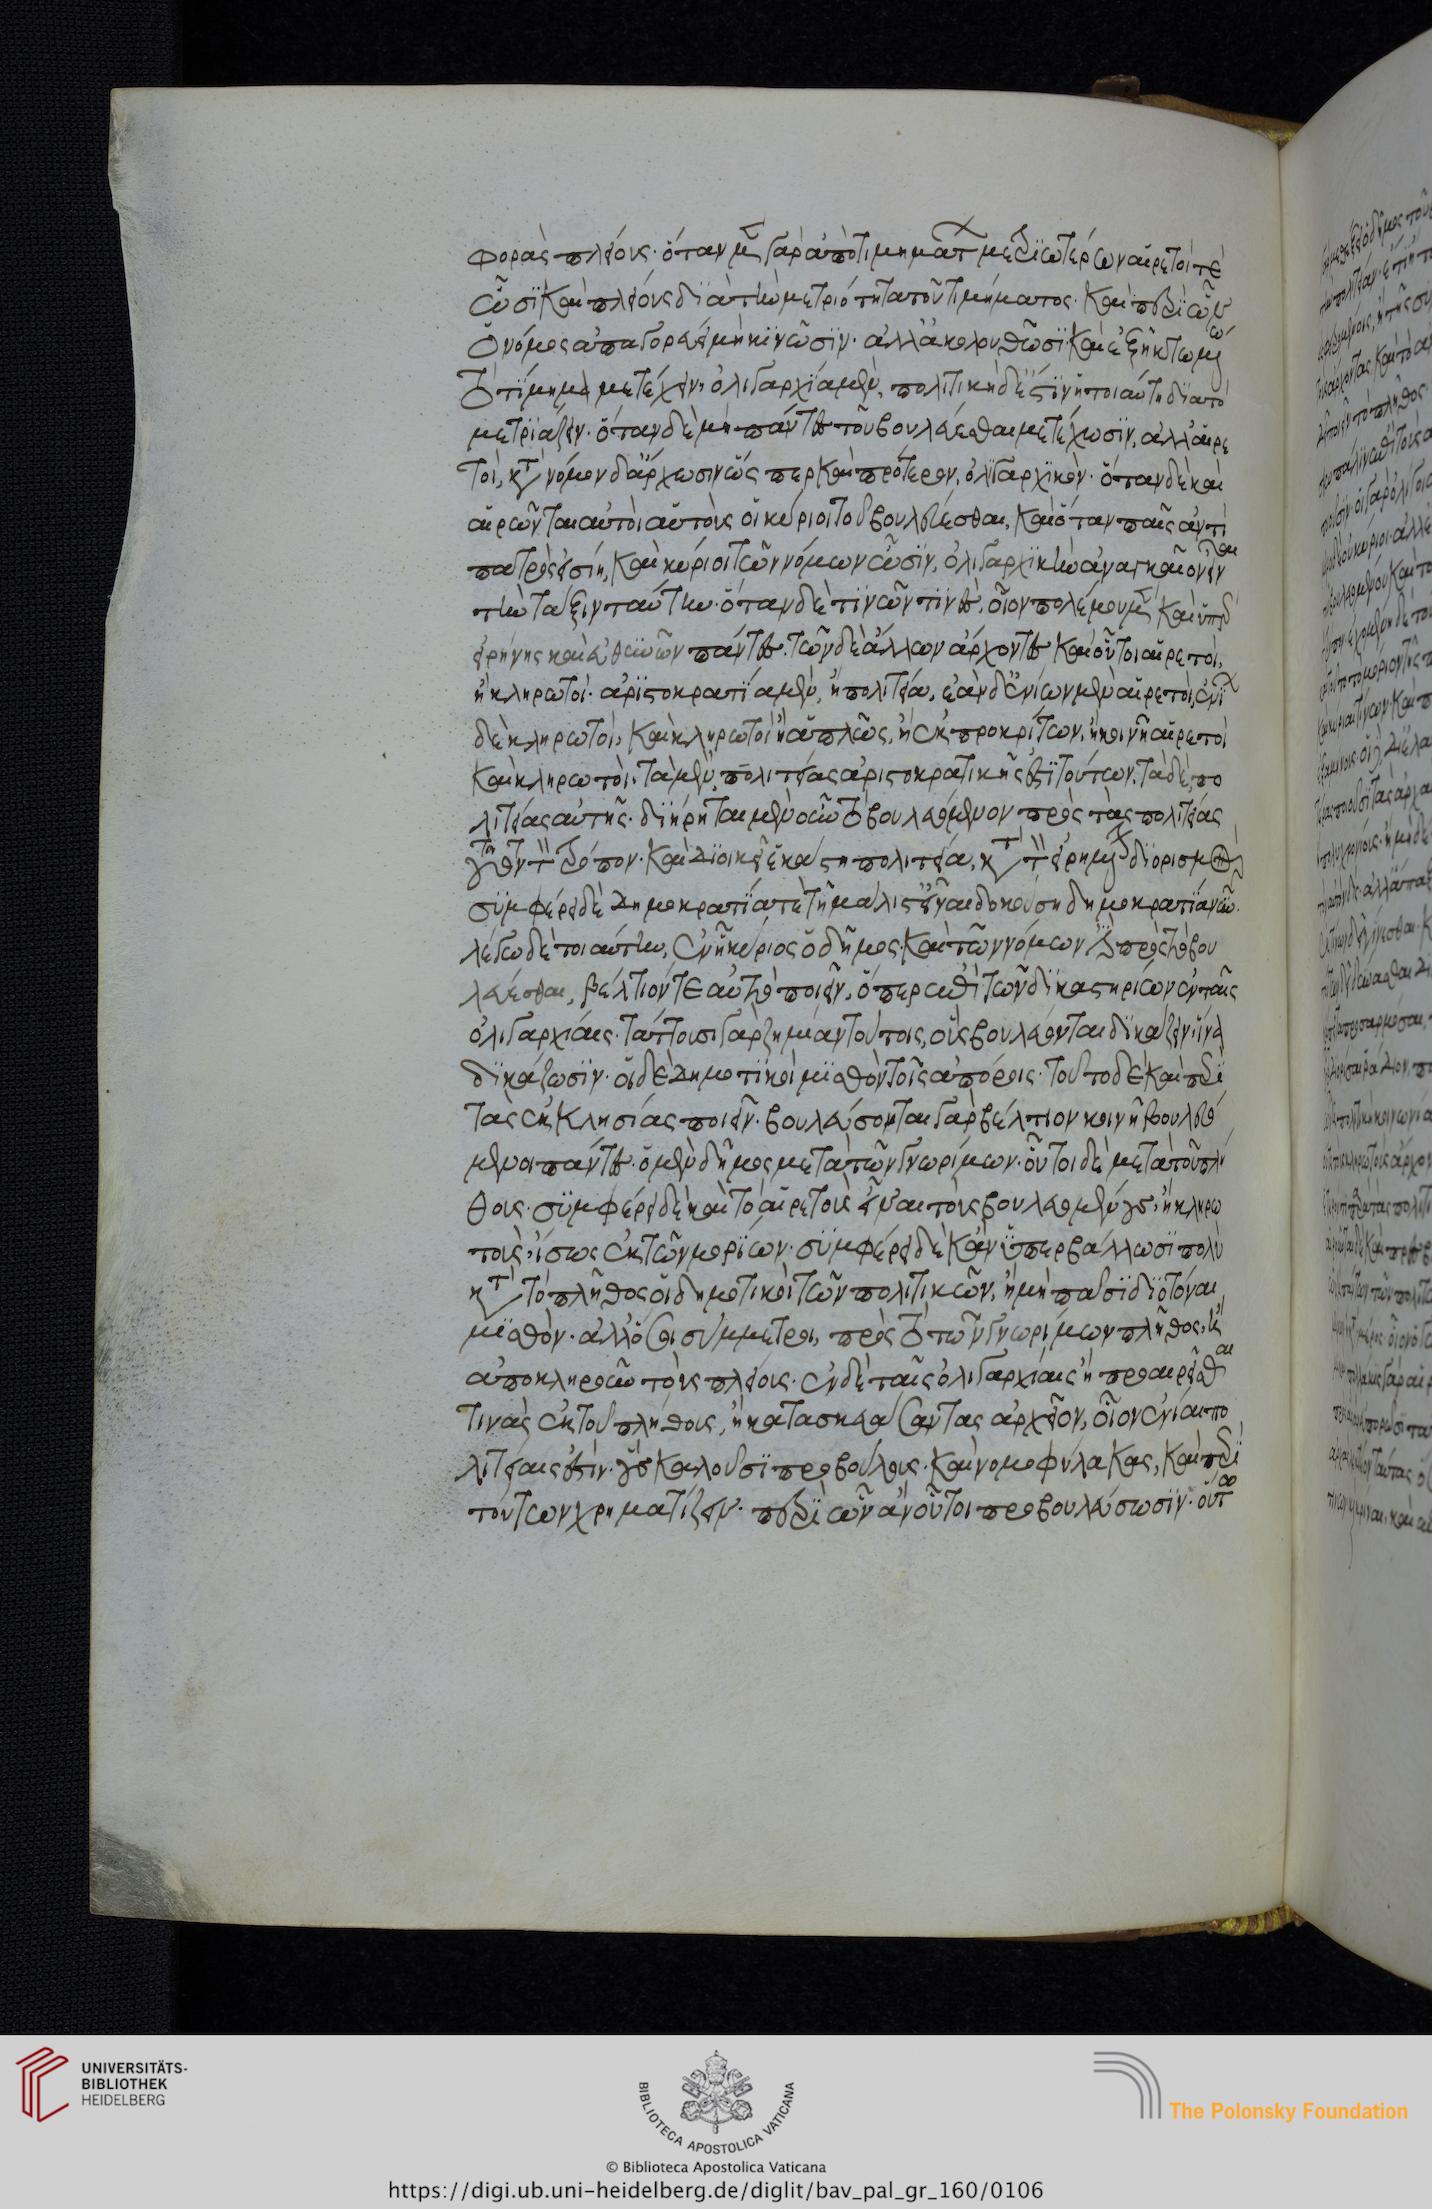 φορὰς πλείους· ὅταν μὲν γὰρ ἀπὸ τιμημάτων μετριωτέρων αἱρετοί τε
ὦσϊ καὶ πλείους διὰ τὴν μετριότητα τοῦ τιμήματος· καὶ περὶ ὧν
ὁ νόμος ἀπαγορεύει μὴ κϊνῶσϊν· ἀλλ' ἀκολουθῶσϊ καὶ ἐξῆ κτωμένω
τὸ τίμημα μετέχειν, ὀλιγαρχϊα μὲν, πολιτικὴ δέ ἐστϊν ἡ τοιαύτη διὰ τὸ
μετριάζειν. ὅταν δὲ μὴ πάντες τοῦ βουλεύεσθαι μετέχωσϊν, ἀλλ' αἱρε
τοὶ, κατὰ νόμον δ' ἄρχωσιν ὥς περ καὶ πρότερον, ὀλϊγαρχϊκὸν· ὅταν δὲ καὶ
αἱρῶνται αὐτοὶ αὑτοὺς οἱ κύριοι τοῦ βουλεύεσθαι, καὶ ὅταν παῖς ἀντὶ
πατρὸς εἰσίη, καὶ κύριοι τῶν νόμων ὦσϊν, ὀλιγαρχϊκὴν ἀναγκαῖον εἶναι
τὴν τάξιν ταύτην. ὅταν δὲ τϊνῶν τϊνὲς, οἷον πολέμου μὲν καὶ ὑπὲρ
εἰρήνης καὶ εὐθϋνῶν πάντες. τῶν δὲ ἄλλων ἄρχοντες καὶ οὗτοι αἱρετοὶ,
ἢ κληρωτοὶ. ἀρϊστοκρατϊα μὲν, ἢ πολιτεία, ἐὰν δ' ἐνίων μὲν αἱρετοὶ, ἐνίων
δὲ κληρωτοὶ, καὶ κληρωτοὶ ἢ ἁπλῶς, ἢ ἐκ προκρίτων, ἢ κοινῆ αἱρετοὶ
καὶ κληρωτοὶ. τὰ μὲν, πολιτείας ἀριστοκρατικῆς ἐστὶ τούτων. τὰ δὲ, πο
λιτείας αὐτῆς. διήρηται μὲν οὖν τὸ βουλευόμενον πρὸς τὰς πολιτείας
τοῦτον τὸν τρόπον. καὶ διοικεῖ ἑκάστη πολιτεία, κατὰ τὸν εἰρημένον διορισμὸν
σϋμφέρει δὲ δημοκρατϊα τε τῆ μάλιστ' εἶναι δοκούση δημοκρατϊα νῦν.
λέγω δὲ τοιαύτην, ἐν ῆ κύριος ὁ δῆμος καὶ τῶν νόμων ἐστὶ πρὸς τὸ βου
λεύεσθαι, βέλτιόν τε αὐτὸ ποιεῖν, ὅπερ ἐπὶ τῶν δϊκαστηρίων ἐν ταῖς
ὀλιγαρχίαις. τάττουσι γὰρ ζημίαν τούτοις, οὓς βουλεύονται δϊκάζειν, ἵνα
δϊκάζωσϊν. οἱ δὲ δημοτϊκοὶ μϊσθὸν τοῖς ἀπόροις. τοῦτο δὲ καὶ περὶ
τὰς ἐκκλησίας ποιεῖν. βουλεύσονται γὰρ βέλτιον κοινῆ βουλευό
μενοι πάντες. ὁ μὲν δῆμος μετὰ τῶν γνωρίμων. οὗτοι δὲ μετὰ τοῦ πλή
θους. σϋμφέρει δὲ καὶ τὸ αἱρετοὺς εἶναι τοὺς βουλευομένους, ἢ κληρω
τοὺς, ἴσως ἐκ τῶν μορίων. σϋμφέρει δὲ κἂν ὑπερβάλλωσϊ πολὺ
κατὰ τὸ πλῆθος οἱ δημοτικοὶ τῶν πολιτικῶν, ἢ μὴ πᾶσϊ διδόναι
μϊσθὸν. ἀλλ' ὅσοι σύμμετροι, πρὸς τὸ τῶν γνωρίμων πλῆθος, ἢ
ἀποκληροῦν τοὺς πλείους. ἐν δὲ ταῖς ὀλιγαρχίαις ἢ προαιρεῖσθαι
τινὰς ἐκ τοῦ πλήθους, ἢ κατασκευάσαντας ἀρχεῖον, οἷον ἐν ἐνίαις πο
λιτείαις ἐστὶν. οὓς καλοῦσϊ προβούλους. καὶ νομοφύλακας, καὶ περὶ
τούτων χρηματίζειν. περὶ ὧν ἂν οὗτοι προβουλεύσωσϊν. οὕτω
UNIVERSITÄTS-
BIBLIOTHEK
HEIDELBERG
BIBLIOTECA APOSTOLICA VATICANA
The Polonsky Foundation
© Biblioteca Apostolica Vaticana
https://digi.ub.uni-heidelberg.de/diglit/bav_pal_gr_160/0106